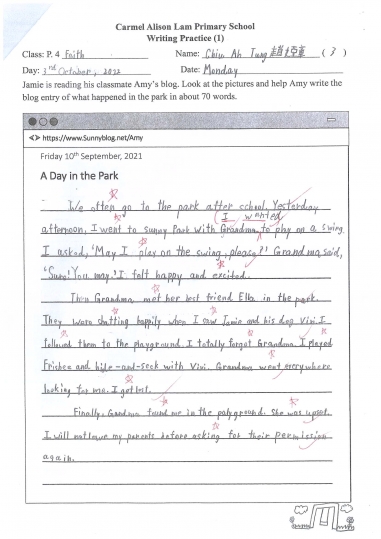 Carmel Alison Lam Primary School
Writing Practice (1)
Class: P. 4 Faith Name: Chiu Ah Tung (3)
Day: 3rd October, 2022 Date: Monday
Jamie is reading his classmate Amy's blog. Look at the pictures and help Amy write the
blog entry of what happened in the park in about 70 words.
<> https://www.Sunnyblog.net/Amy
Friday 10th September, 2021
A Day in the Park
We often go to the park after school. Yesterday
I wanted
afternoon, I went to Sunny Park with Grandma to play on a swing.
I asked, 'May I play on the swing, please?' Grandma said,
'Sure! You may.' I felt happy and excited.
Then Grandma met her best friend Ella in the park.
They were chatting happily when I saw Jamie and his dog Vivi. I
followed them to the playground. I totally forgot Grandma. I played
Frisbee and hide-and-seek with Vivi. Grandma went everywhere
looking for me. I got lost.
Finally, Grandma found me in the palyground. She was upset.
I will not leave my parents before asking for their permission
again.